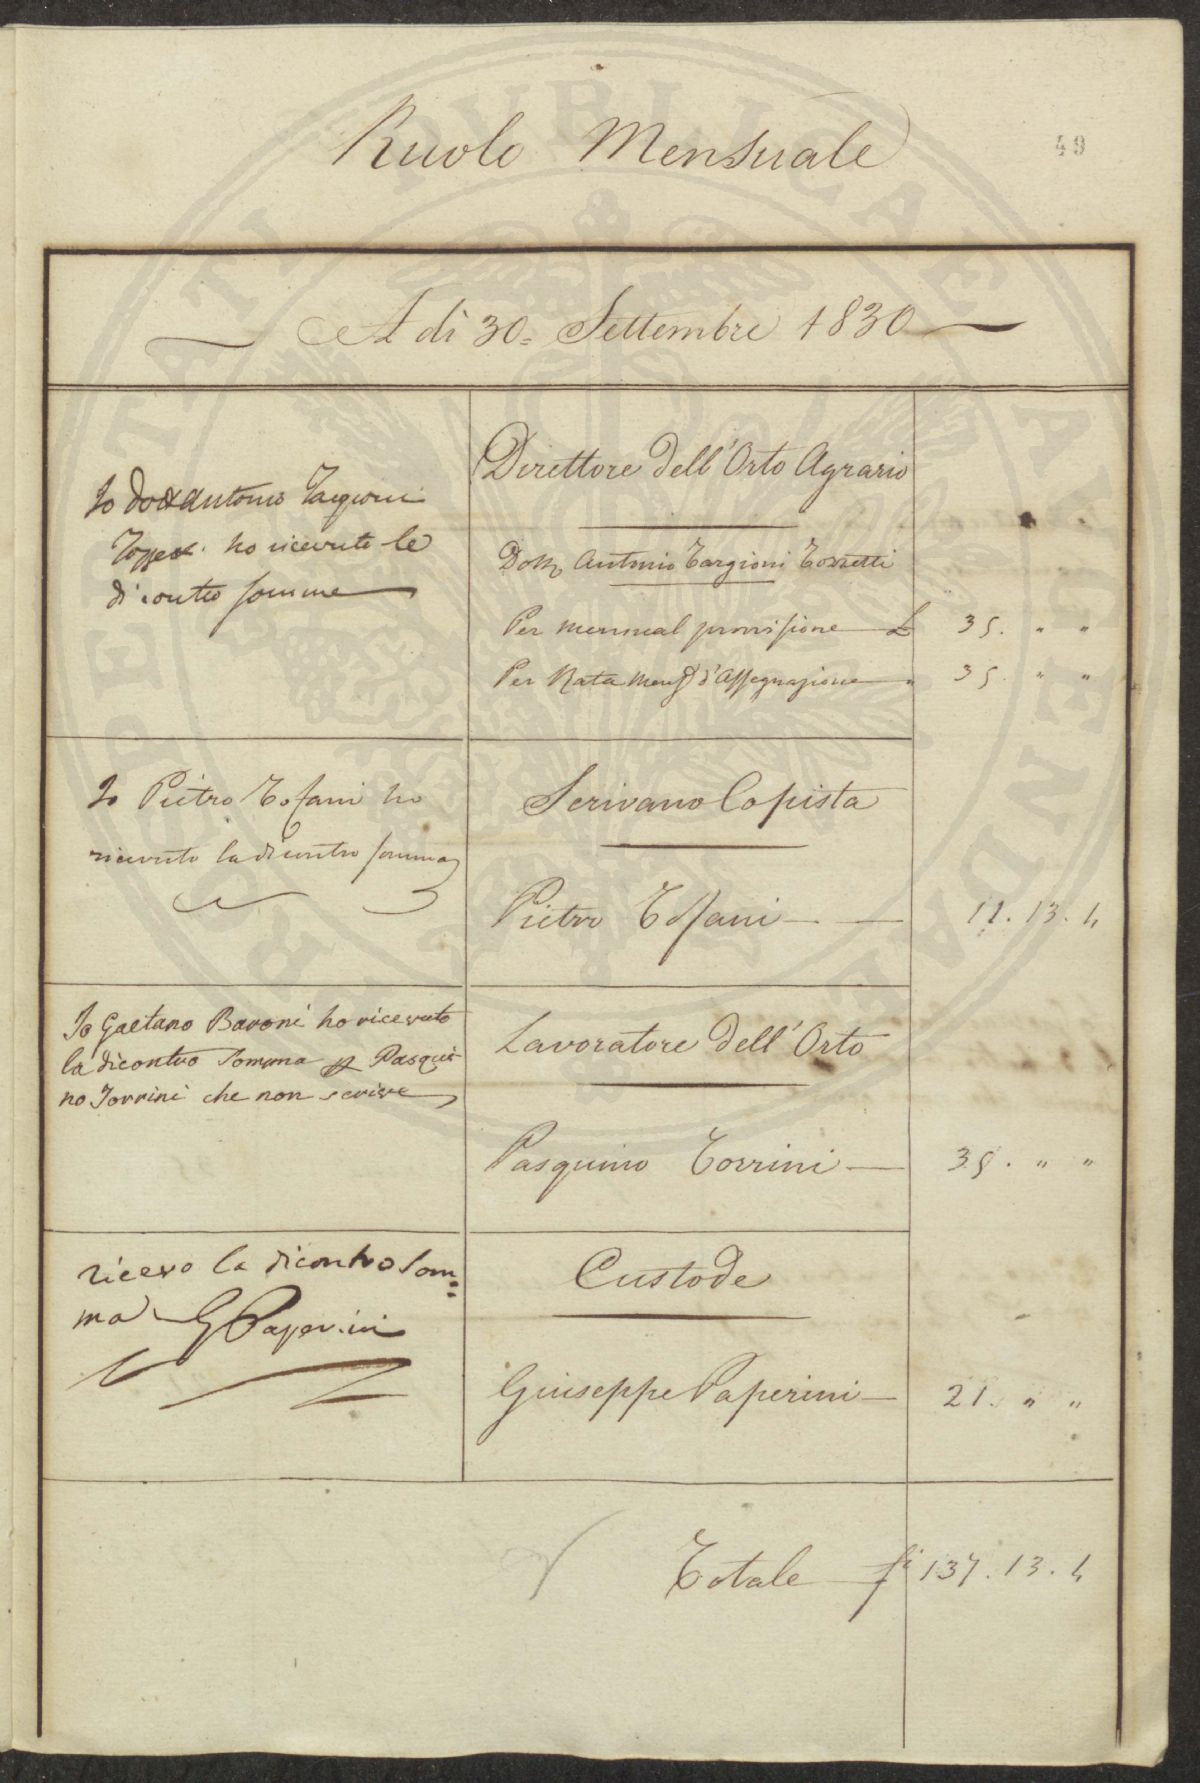 PROSPERITATI PVBLICAE AVGENDAE
49
Ruolo Mensuale
A dì 30= Settembre 1830
Io Dott Antonio Targioni
Tozzett. ho ricevute le
di contro somme
Direttore dell'Orto Agrario
Dott Antonio Targioni Tozzetti
Per mensual provisione £ 35. " "
Per Rata mens d'Assegnazione " 35. " "
Io Pietro Tofani ho
ricevuto la di contro somma
Scrivano Copista
Pietro Tofani 11. 13. 4
Io Gaetano Baroni ho ricevuto
la dicontro somma p Pasqui-
no Torrini che non scrive
Lavoratore dell'Orto
Pasquino Torrini 35. " "
ricevo la dicontro som=
ma G Paperini
Custode
Giuseppe Paperini 21. " "
Totale £ 137. 13. 4